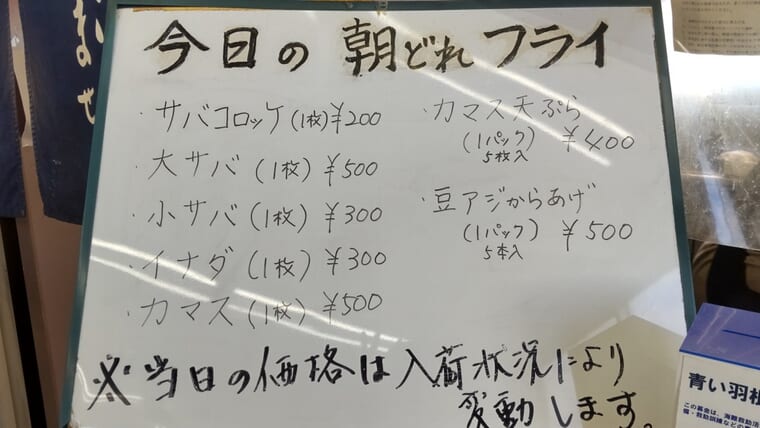 今日の朝どれフライ
・サバコロッケ(1枚)¥200
・大サバ(1枚)¥500
・小サバ(1枚)¥300
・イナダ(1枚)¥300
・カマス(1枚)¥500
・カマス天ぷら
(1パック)¥400
5枚入
・豆アジからあげ
(1パック)¥500
5本入
※当日の価格は入荷状況により
変動します。
青い羽根
この募金は、海難救助活